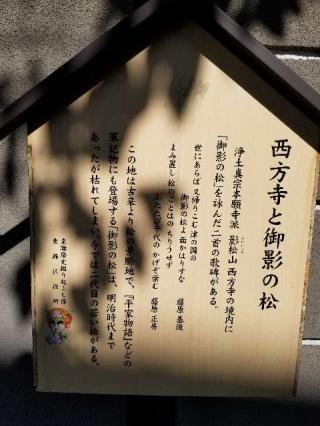 西方寺と御影の松
浄土真宗本願寺派 影松山 西方寺の境内に
「御影の松」を詠んだ二首の歌碑がある。
世にあらば又帰りこむ津の国の
御影の松よ面かはりすな
藤原基俊
よみ置し松のことはのちりうせず
千代のかげぞ栄む
藤原正房
この地は古来より松の景勝地で、『平家物語』などの
軍記物にも登場する「御影の松」は、明治時代まで
あったが枯れてしまい、今では二代目の若い松がある。
東灘歴史掘り起こし隊
東灘区役所